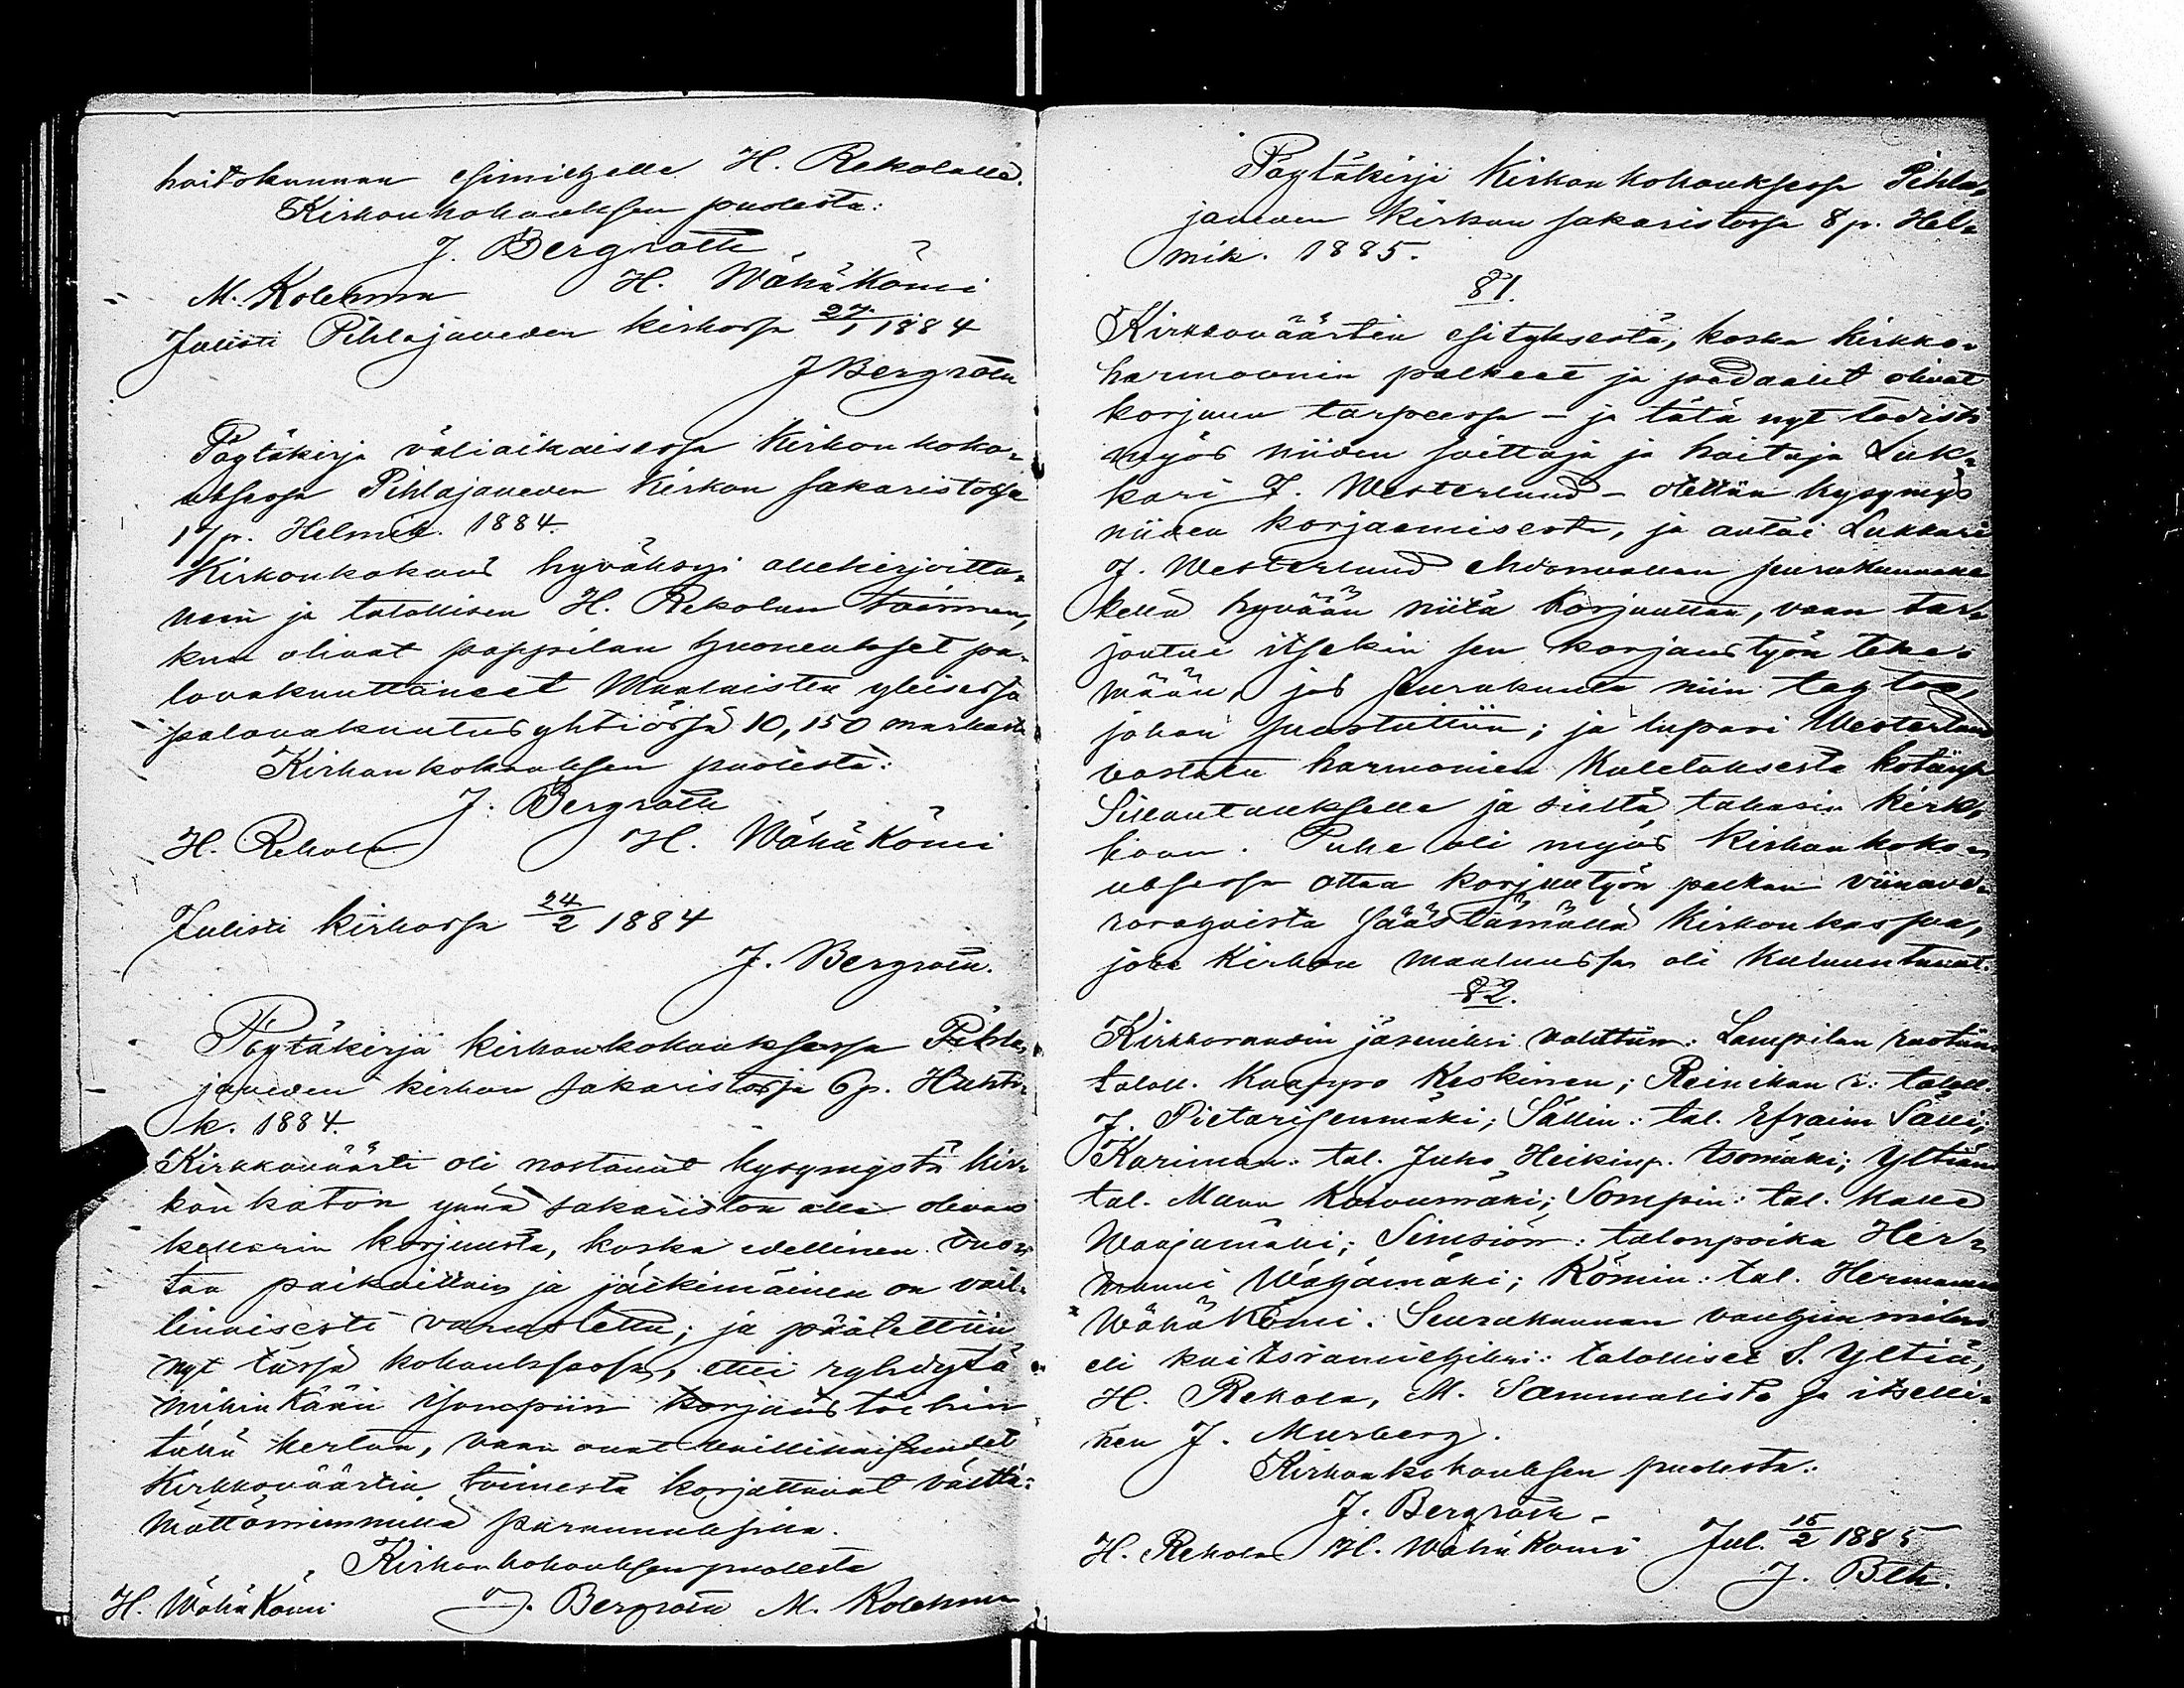 hoitokunnan esimiehelle H. Rekolalle.
Kirkonkokouksen puolesta:
J. Bergroth
M. Kolehma H. WähäKömi
Julisti Pihlajaveden kirkossa 27/1 1884
J Bergroth
Pöytäkirja väliaikaisessa Kirkonkoko-
uksessa Pihlajaveden Kirkon sakaristossa
17 p. Helmik. 1884.
Kirkonkokous hyväksyi allekirjoitta-
neen ja talollisen H. Rekolan toimen,
kun olivat pappilan huoneukset pa-
lovakuuttaneet Maalaisten yleisessä
palovakuutusyhtiössä 10,150 markasta
Kirkonkokouksen puolesta:
J. Bergroth
H. Rekola H. WähäKömi
Julisti kirkossa 24/2 1884
J. Bergroth.
Pöytäkirja kirkonkokouksessa Pihla-
javeden kirkon sakaristossa 6 p. Huhti-
k. 1884.
Kirkkoväärti oli nostanut kysymystä kir-
kon katon ynnä sakariston alla olevan
kellarin korjuusta, koska edellinen vuo-
taa paikoittain ja jälkimäinen on vail-
linaisesti varustettu; ja päätettiin
nyt tässä kokouksessa, ettei ryhdytä
mihinkään isompiin korjaustöihin
tällä kertaa, vaan ovat vaillinaisuudet
Kirkkoväärtin toimesta korjattavat välttä-
mättömimmillä parannuksilla.
Kirkonkokouksen puolesta
H. WähäKömi J. Bergroth M. Kolehma
Pöytäkirja Kirkonkokouksessa Pihla-
javeden Kirkon sakaristossa 8 p. Hel-
mik. 1885.
§1.
Kirkkoväärtin esityksestä, koska kirkko-
harmoonin palkeet ja pedaalit olivat
korjuun tarpeessa – ja tätä nyt todisti
myös niiden soittaja ja hoitaja Luk-
kari J. Westerlund – otettiin kysymys
niiden korjaamisesta, ja antoi Lukkari
J. Westerlund ehdonvallan seurakunnalle
kellä hyvään niitä korjuuttaa, vaan tar-
joutui itsekin sen korjaustyön teke-
mään, jos seurakunta niin tahtoo,
johon suostuttiin; ja lupasi Westerlund
vastata harmonien kuletuksesta kotiinsa
Sillantaukselle ja sieltä takasin kirk-
koon. Puhe oli myös kirkonkoko-
uksessa ottaa korjuutyön palkan viinave-
rorahoista säästämällä Kirkonkassaa,
joka Kirkon maaluussa oli kuluuntunut.
§2.
Kirkkoraadin jäseniksi valittiin: Lampilan ruotiin:
taloll. Kaappo Keskinen; Reinikan r: taloll.
J. Pietarisenmäki; Sällin: tal. Efraim Sälli;
Kariman: tal. Juho Heikinp. Isomäki; Yltiän
tal. Manu Koivumäki; Sompin: tal. Kalle
Waajamäki; Simsiön: talonpoika Her-
manni Wähämäki; Kömin: tal. Hermanni
WähäKömi. Seurakunnan vanhimmiksi
eli kuitsramiehiksi: talolliset S. Yltiä,
H. Rekola, M. Sammalisto ja itselli-
nen J. Murberg.
Kirkonkokouksen puolesta:
J. Bergroth
H. Rekola H. WähäKömi Jul. 15/2 1885
J. Bth.